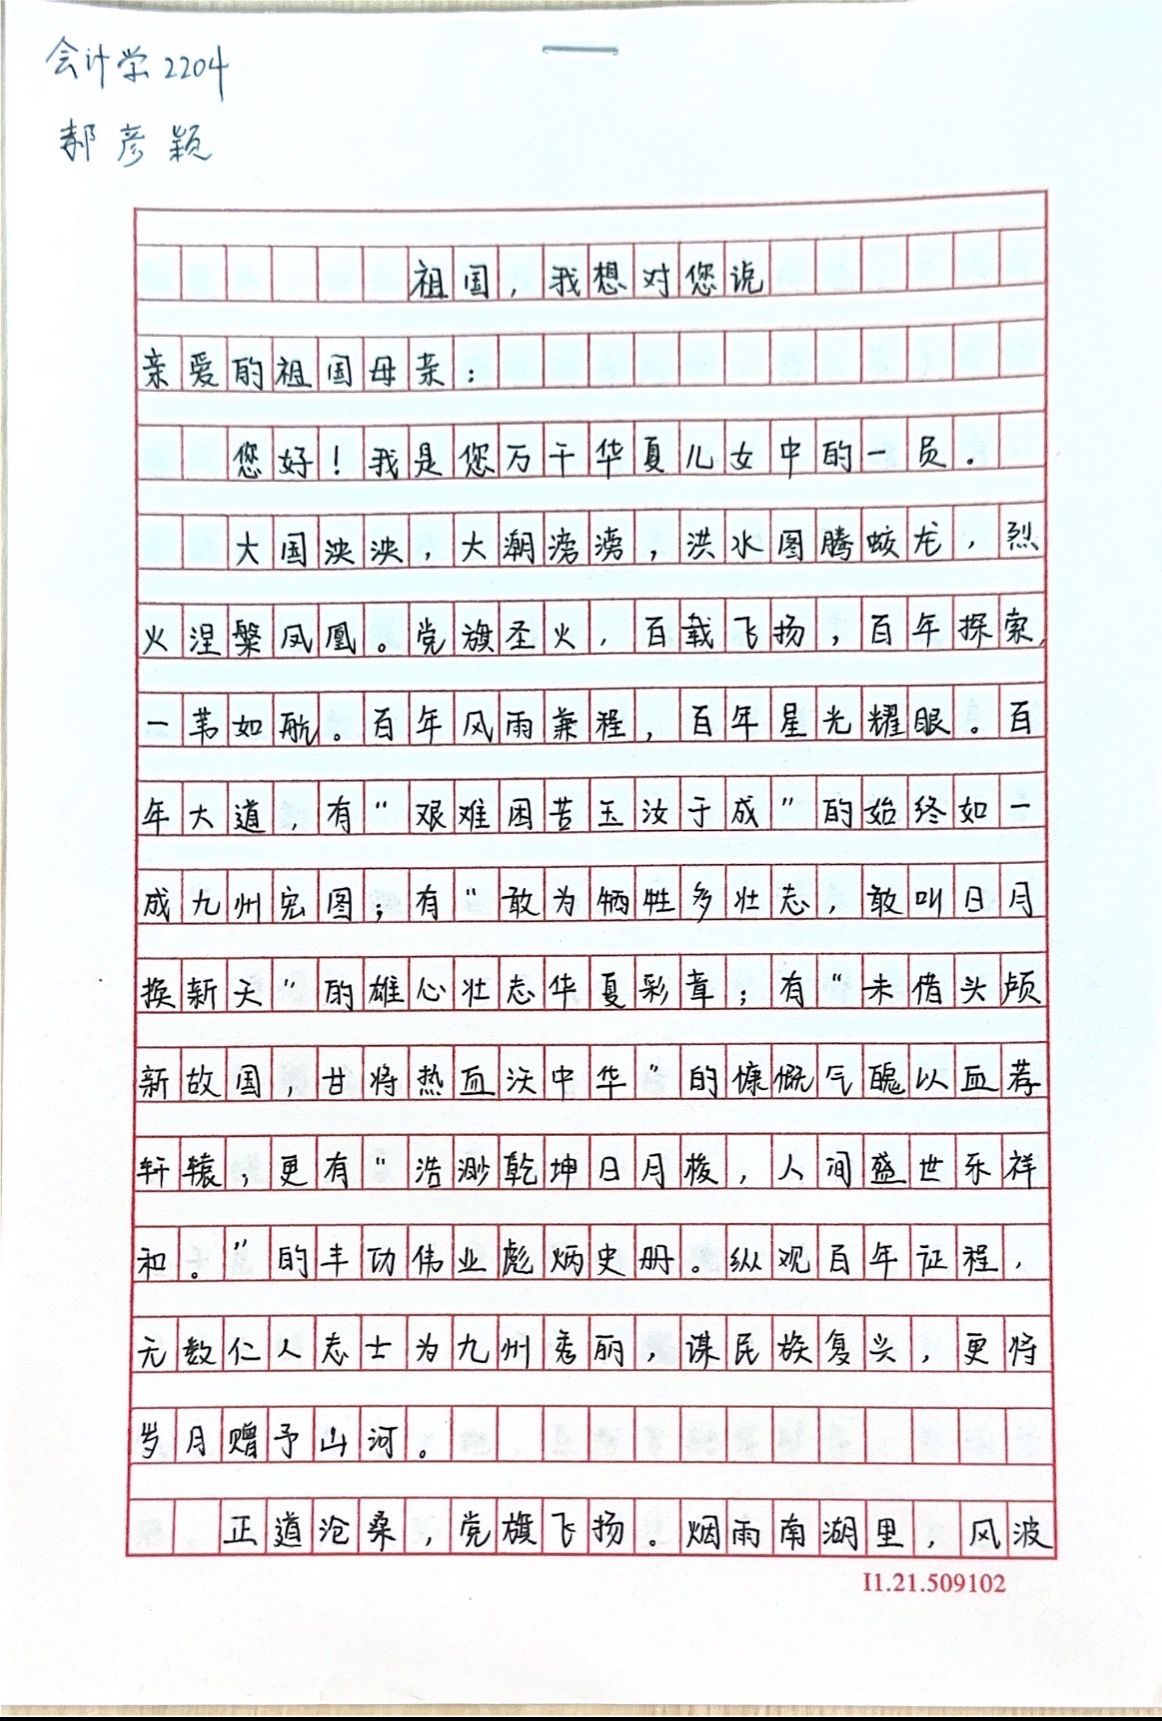 会计学2204
郝彦颖
祖国,我想对您说
亲爱的祖国母亲:
您好!我是您万千华夏儿女中的一员。
大国泱泱,大潮滂滂,洪水图腾蛟龙,烈
火涅槃凤凰。党旗圣火,百载飞扬,百年探索,
一苇如航。百年风雨兼程,百年星光耀眼。百
年大道,有“艰难困苦玉汝于成”的始终如一
成九州宏图;有“敢为牺牲多壮志,敢叫日月
换新天”的雄心壮志华夏彩章;有“未借头颅
新故国,甘将热血沃中华”的慷慨气魄以血荐
轩辕,更有“浩渺乾坤日月梭,人间盛世乐祥
和。”的丰功伟业彪炳史册。纵观百年征程,
无数仁人志士为九州秀丽,谋民族复兴,更将
岁月赠予山河。
正道沧桑,党旗飞扬。烟雨南湖里,风波
I1.21.509102